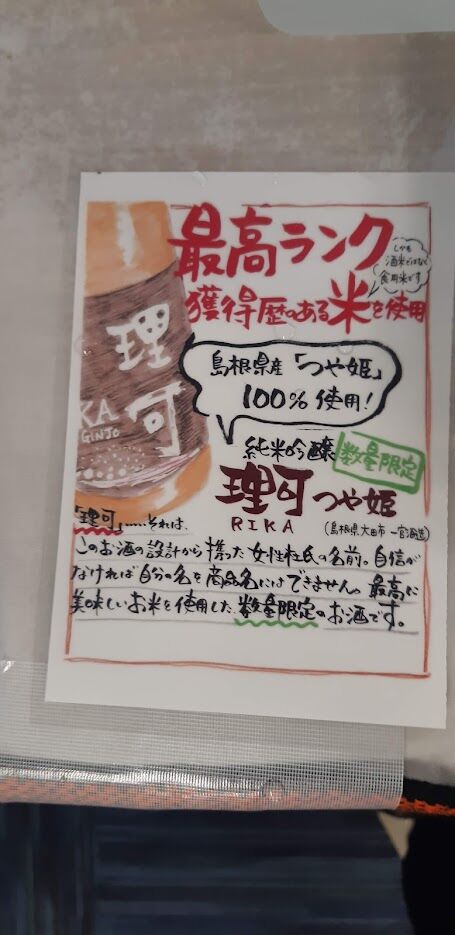 最高ランク
しかも
酒米ではなく
食用米です
獲得歴のある米を使用
島根県産「つや姫」
100%使用!
理可
KA
GINJO
純米吟醸 数量限定
理可 つや姫
RIKA (島根県大田市 一宮酒造)
「理可」……それは、
このお酒の設計から携った女性杜氏の名前。自信が
なければ自分の名を商品名にはできません。最高に
美味しいお米を使用した、数量限定のお酒です。